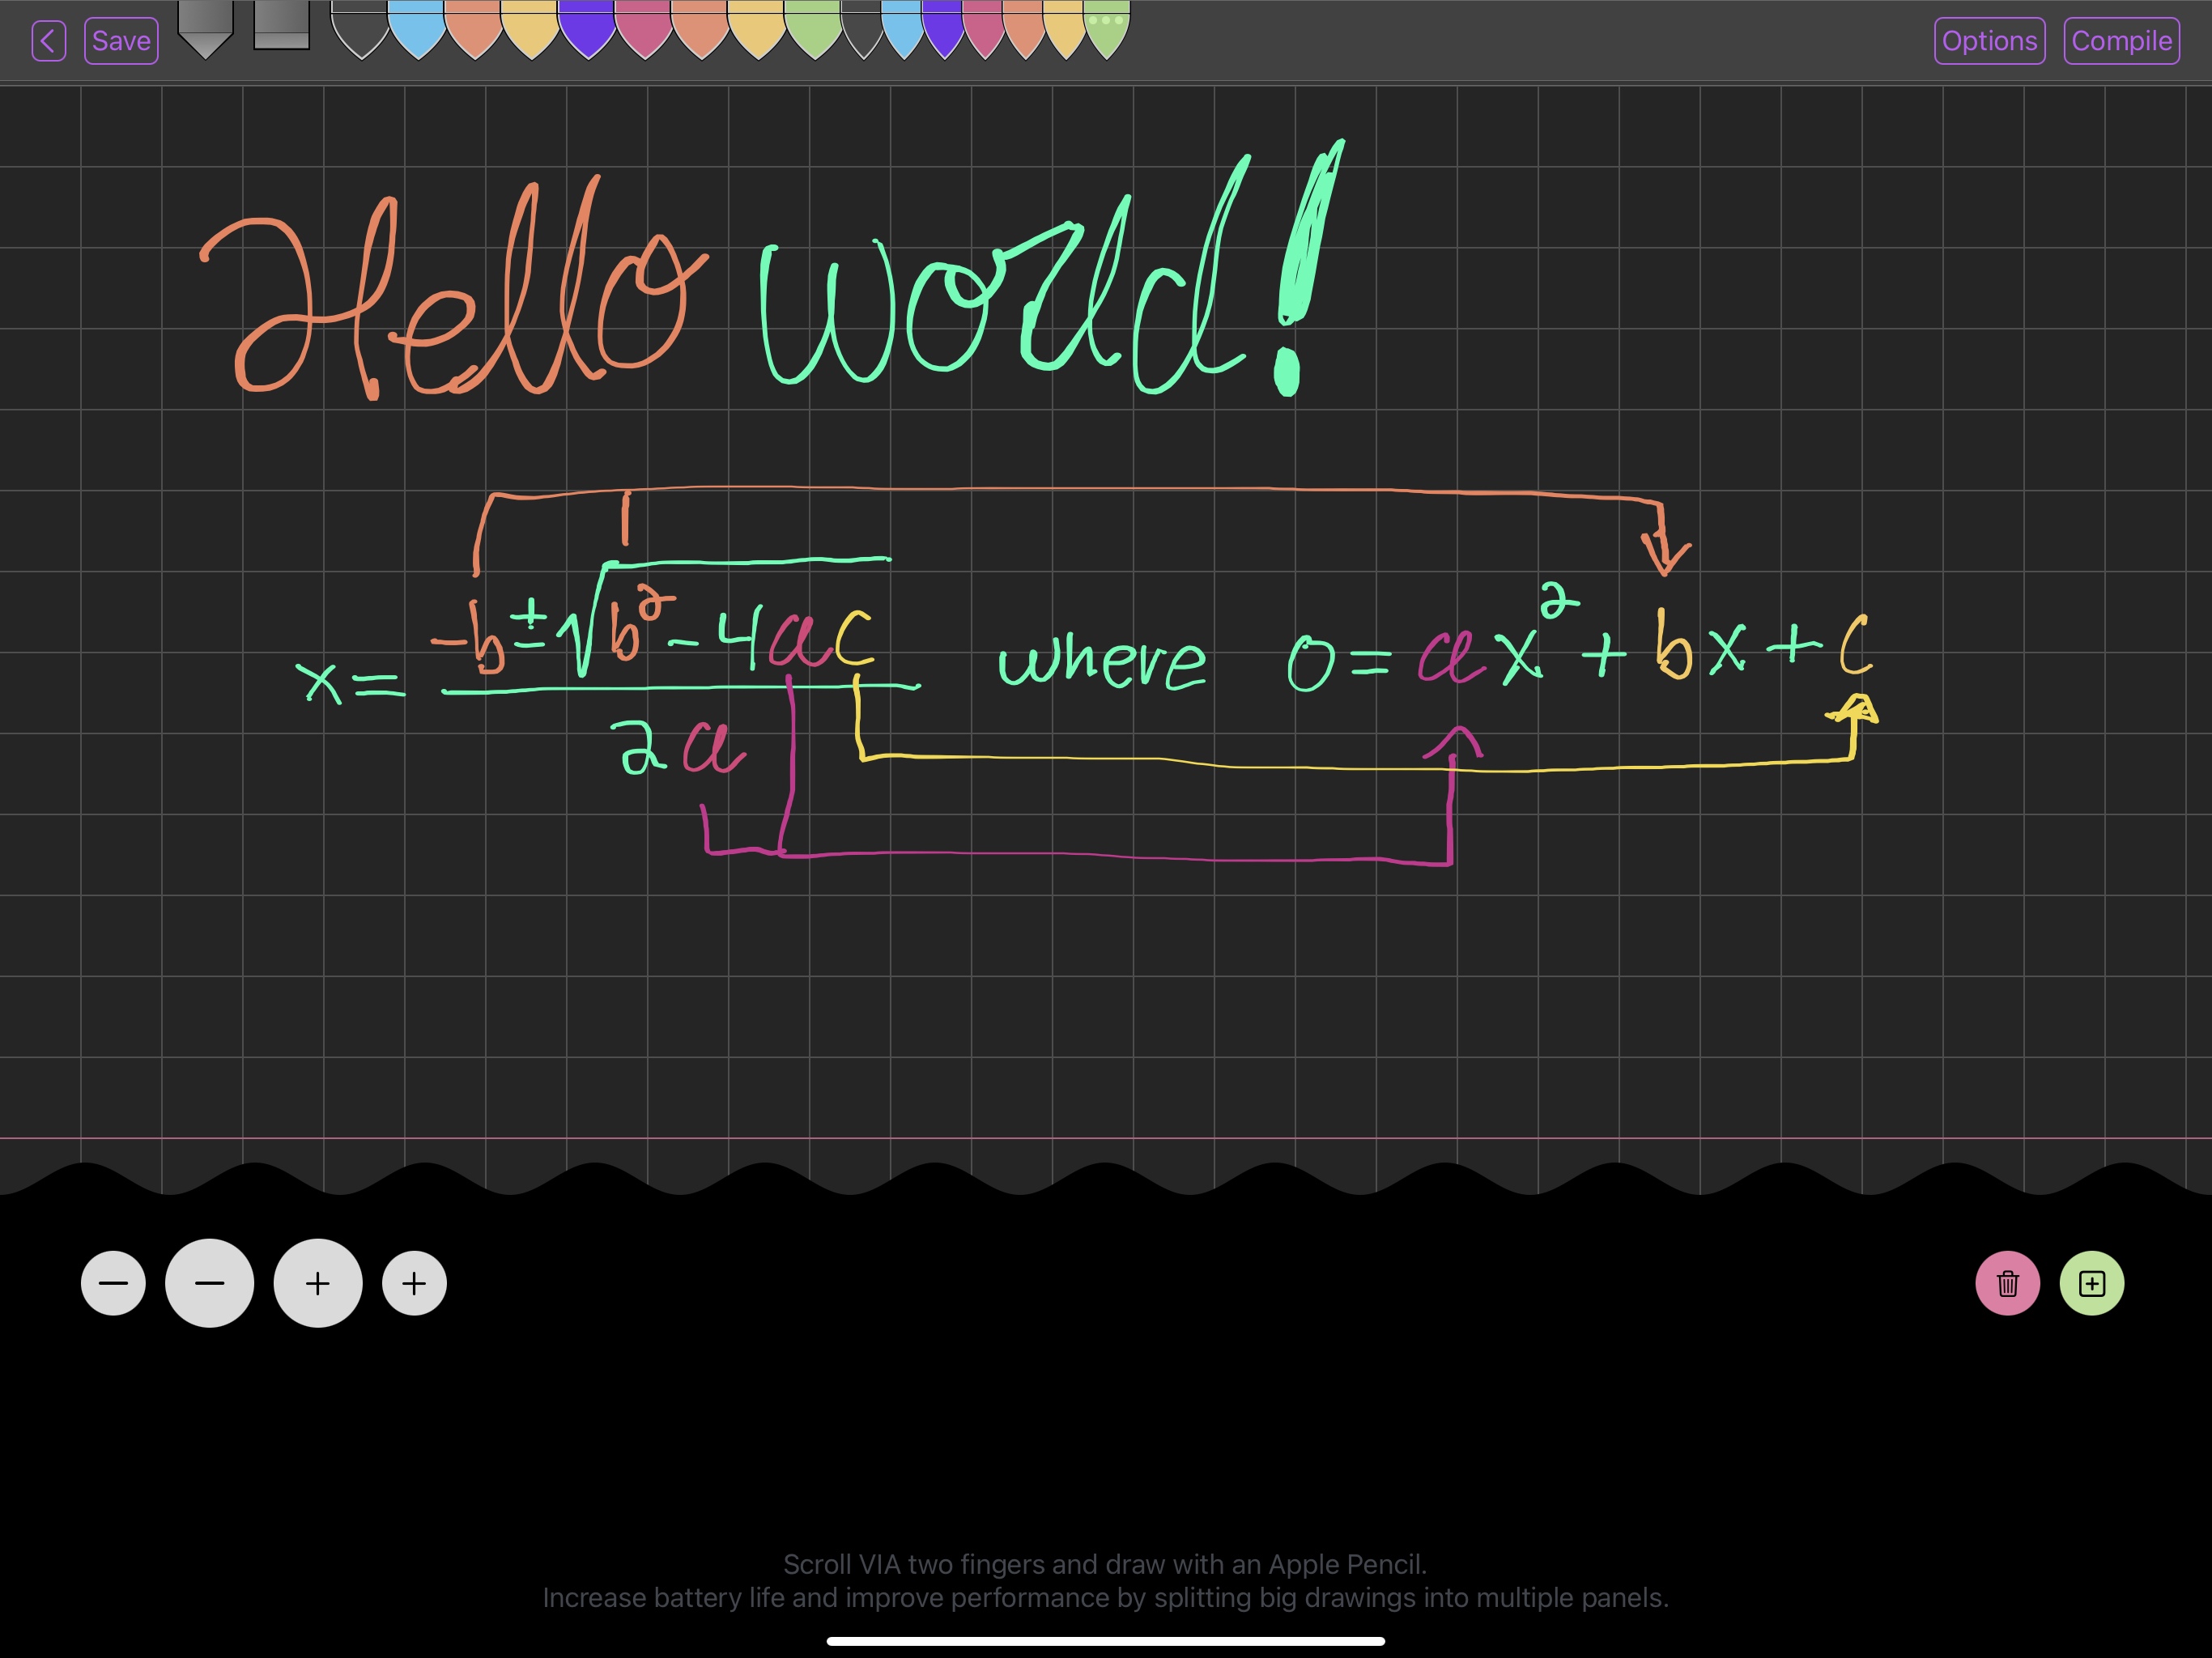 Save Options Compile
Hello World!
x = -b ± √b² - 4ac / 2a where 0 = ax² + bx + c
Scroll VIA two fingers and draw with an Apple Pencil.
Increase battery life and improve performance by splitting big drawings into multiple panels.